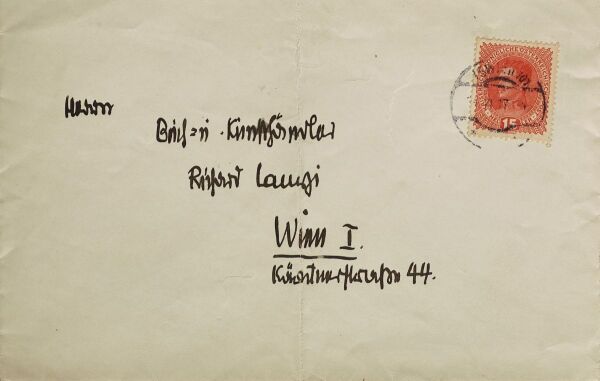 Herrn
Buch= u. Kunsthändler
Richard Lanyi
Wien I.
Kärntnerstraße 44.
15